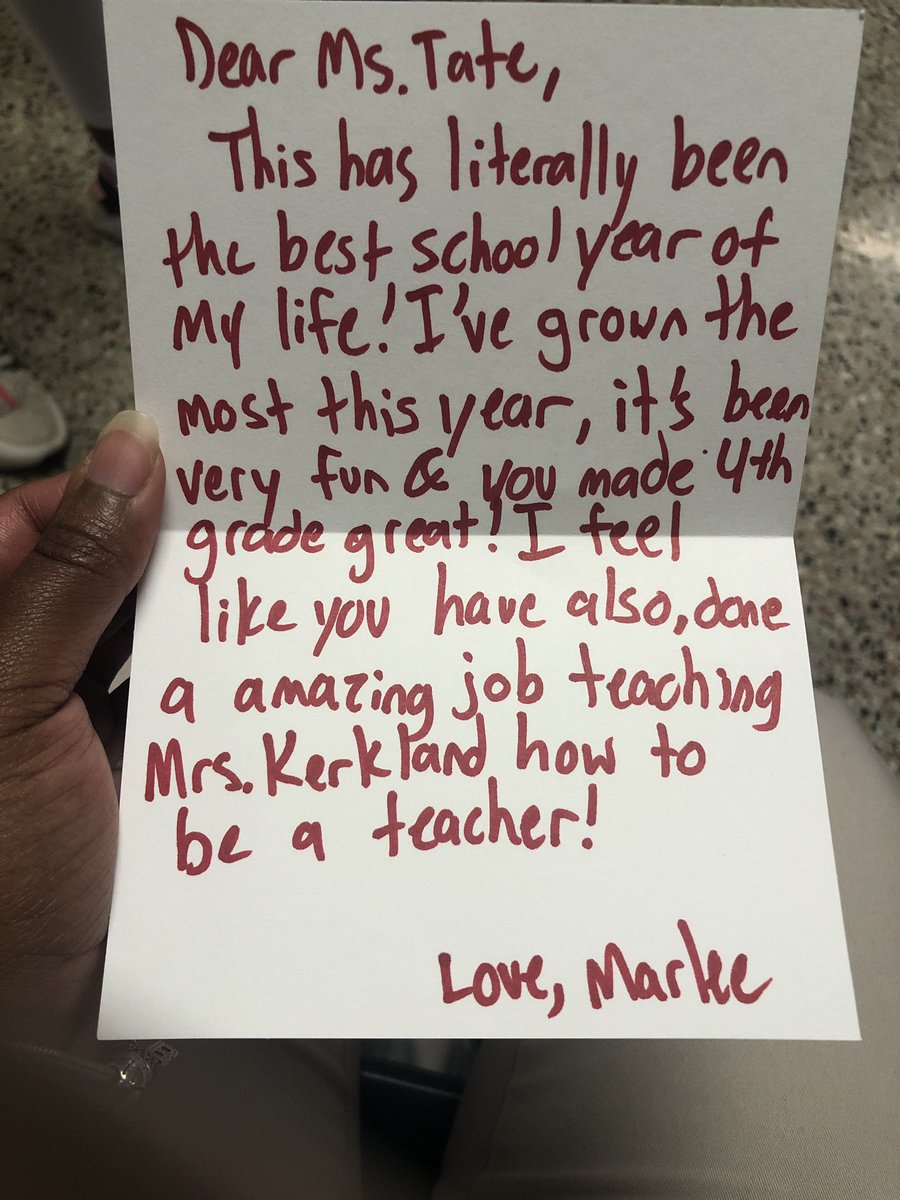 Dear Ms. Tate,
This has literally been
the best school year of
my life! I've grown the
most this year, it's been
very fun & you made 4th
grade great! I feel
like you have also, done
a amazing job teaching
Mrs. Kerkland how to
be a teacher!
Love, Marlee